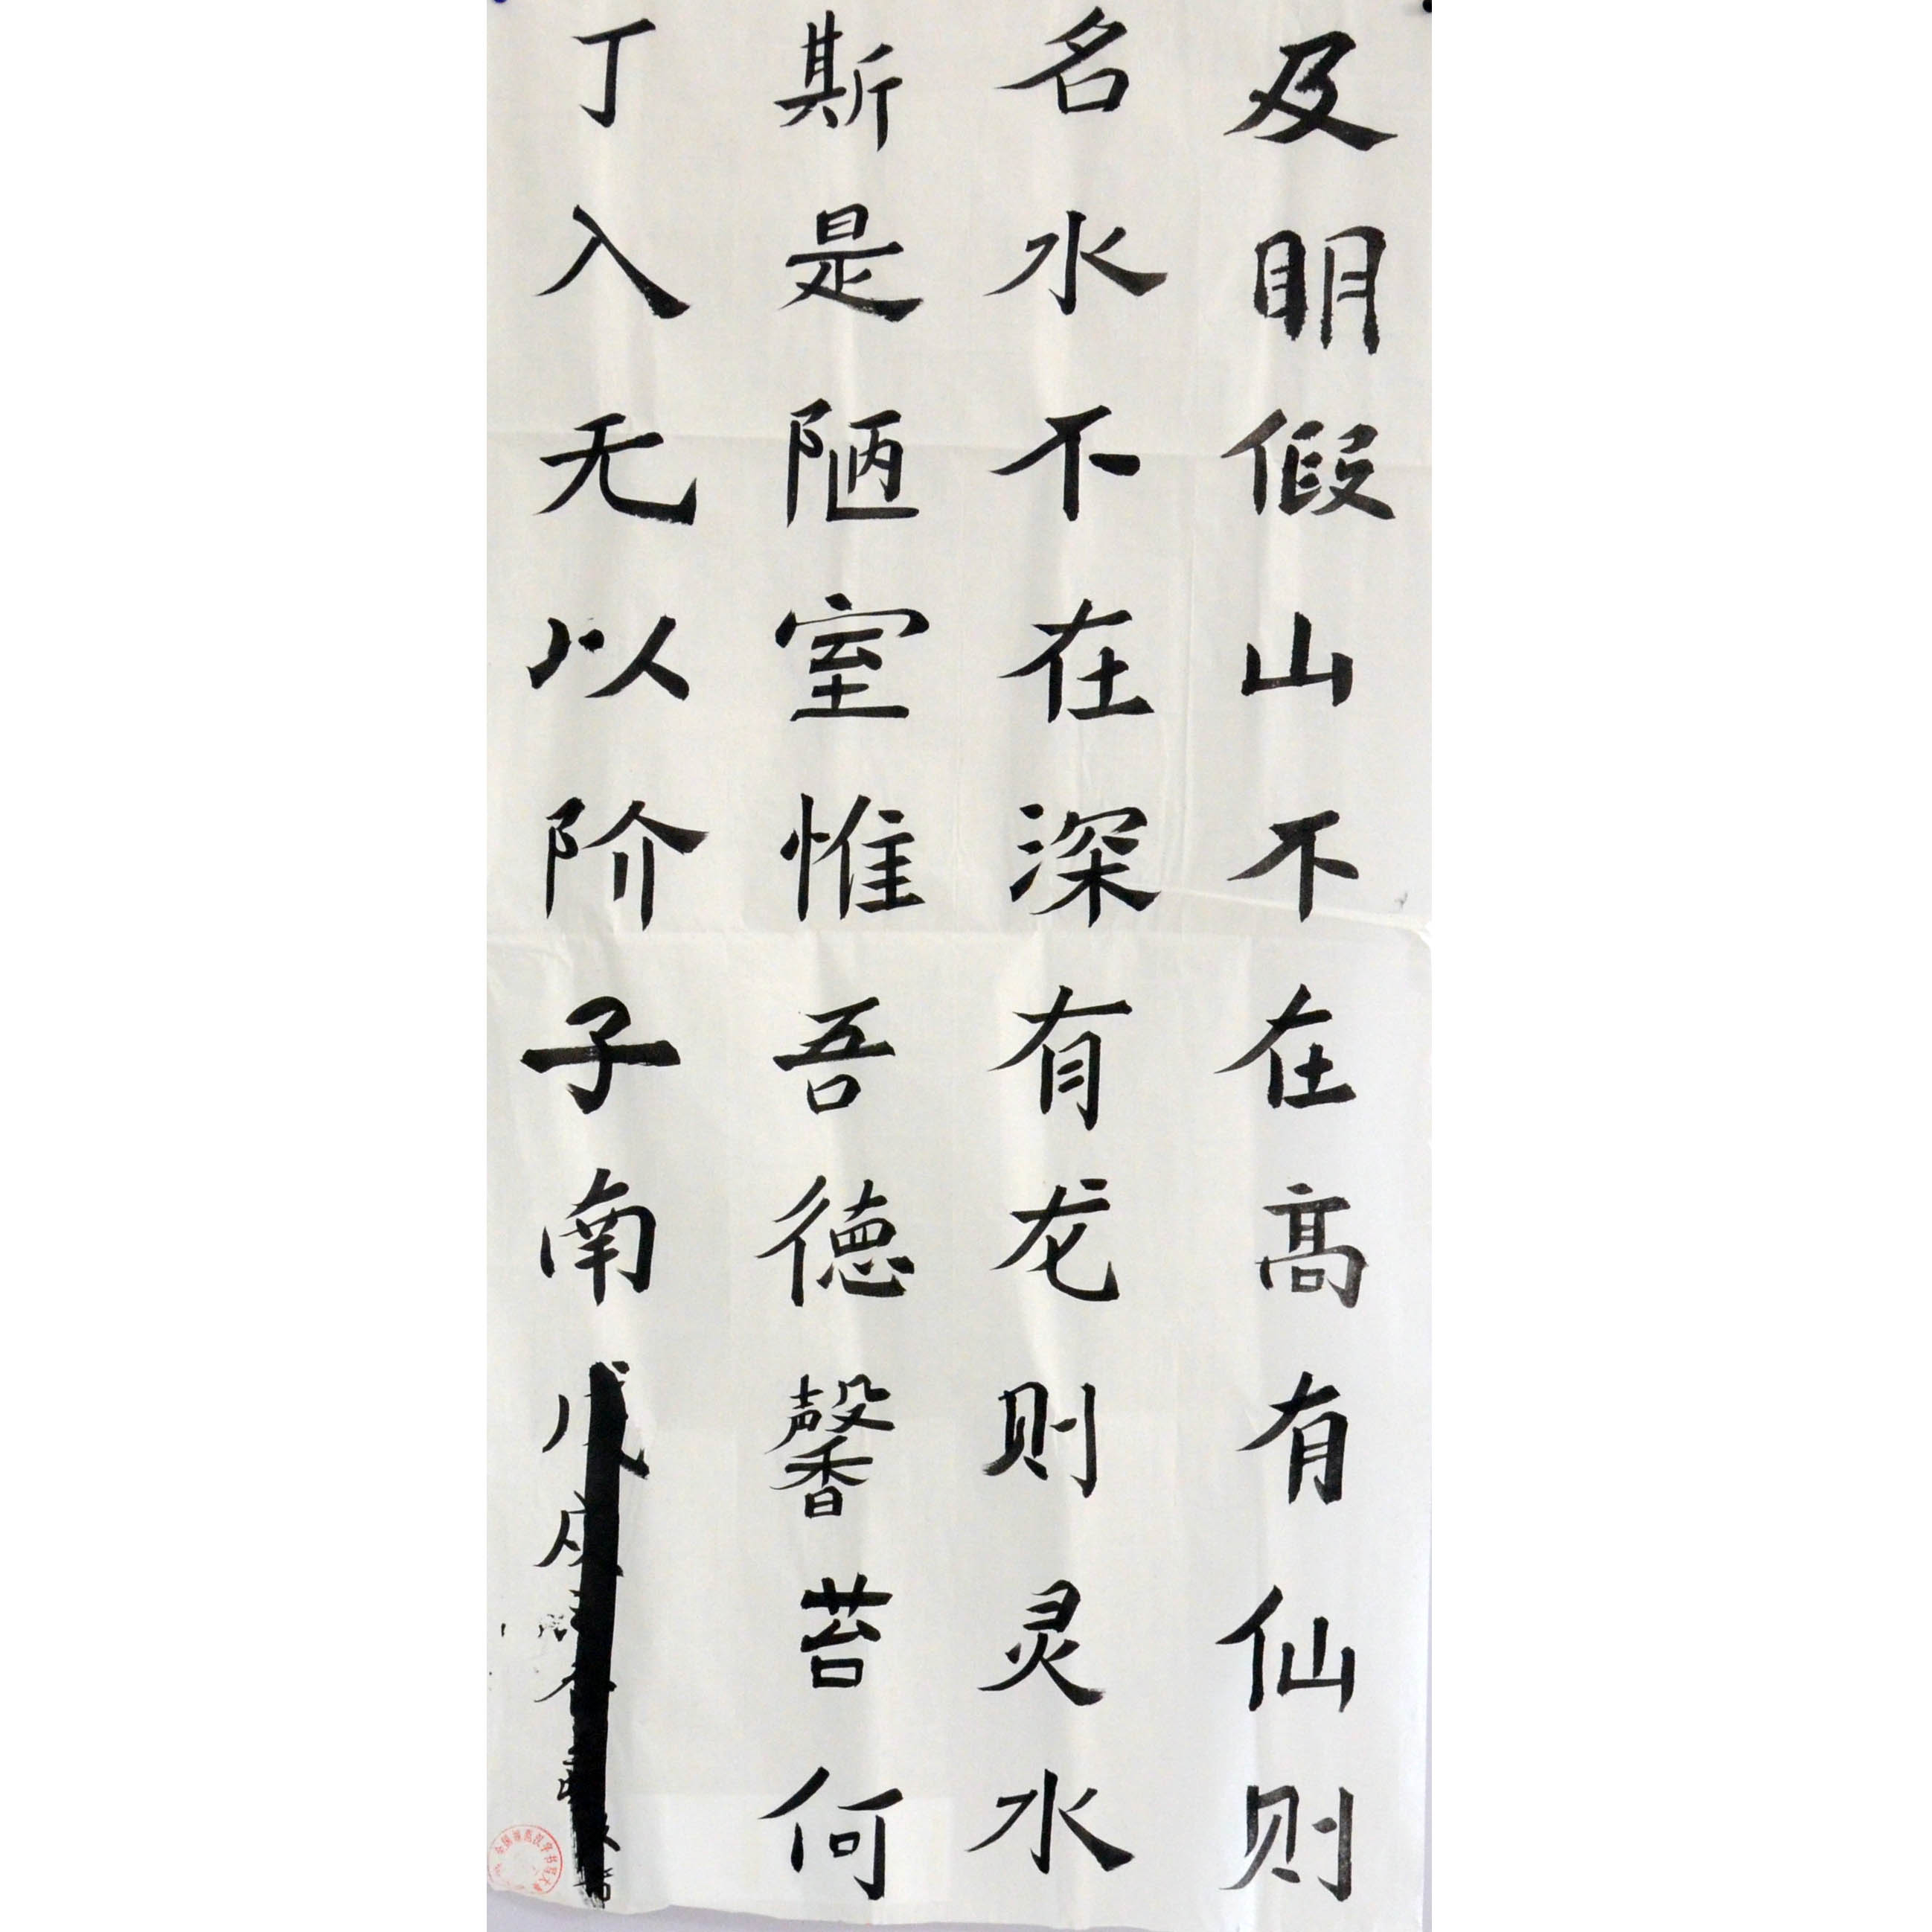 及明假山不在高有仙则
名水不在深有龙则灵水
斯是陋室惟吾德馨苔何
丁入无以阶子南